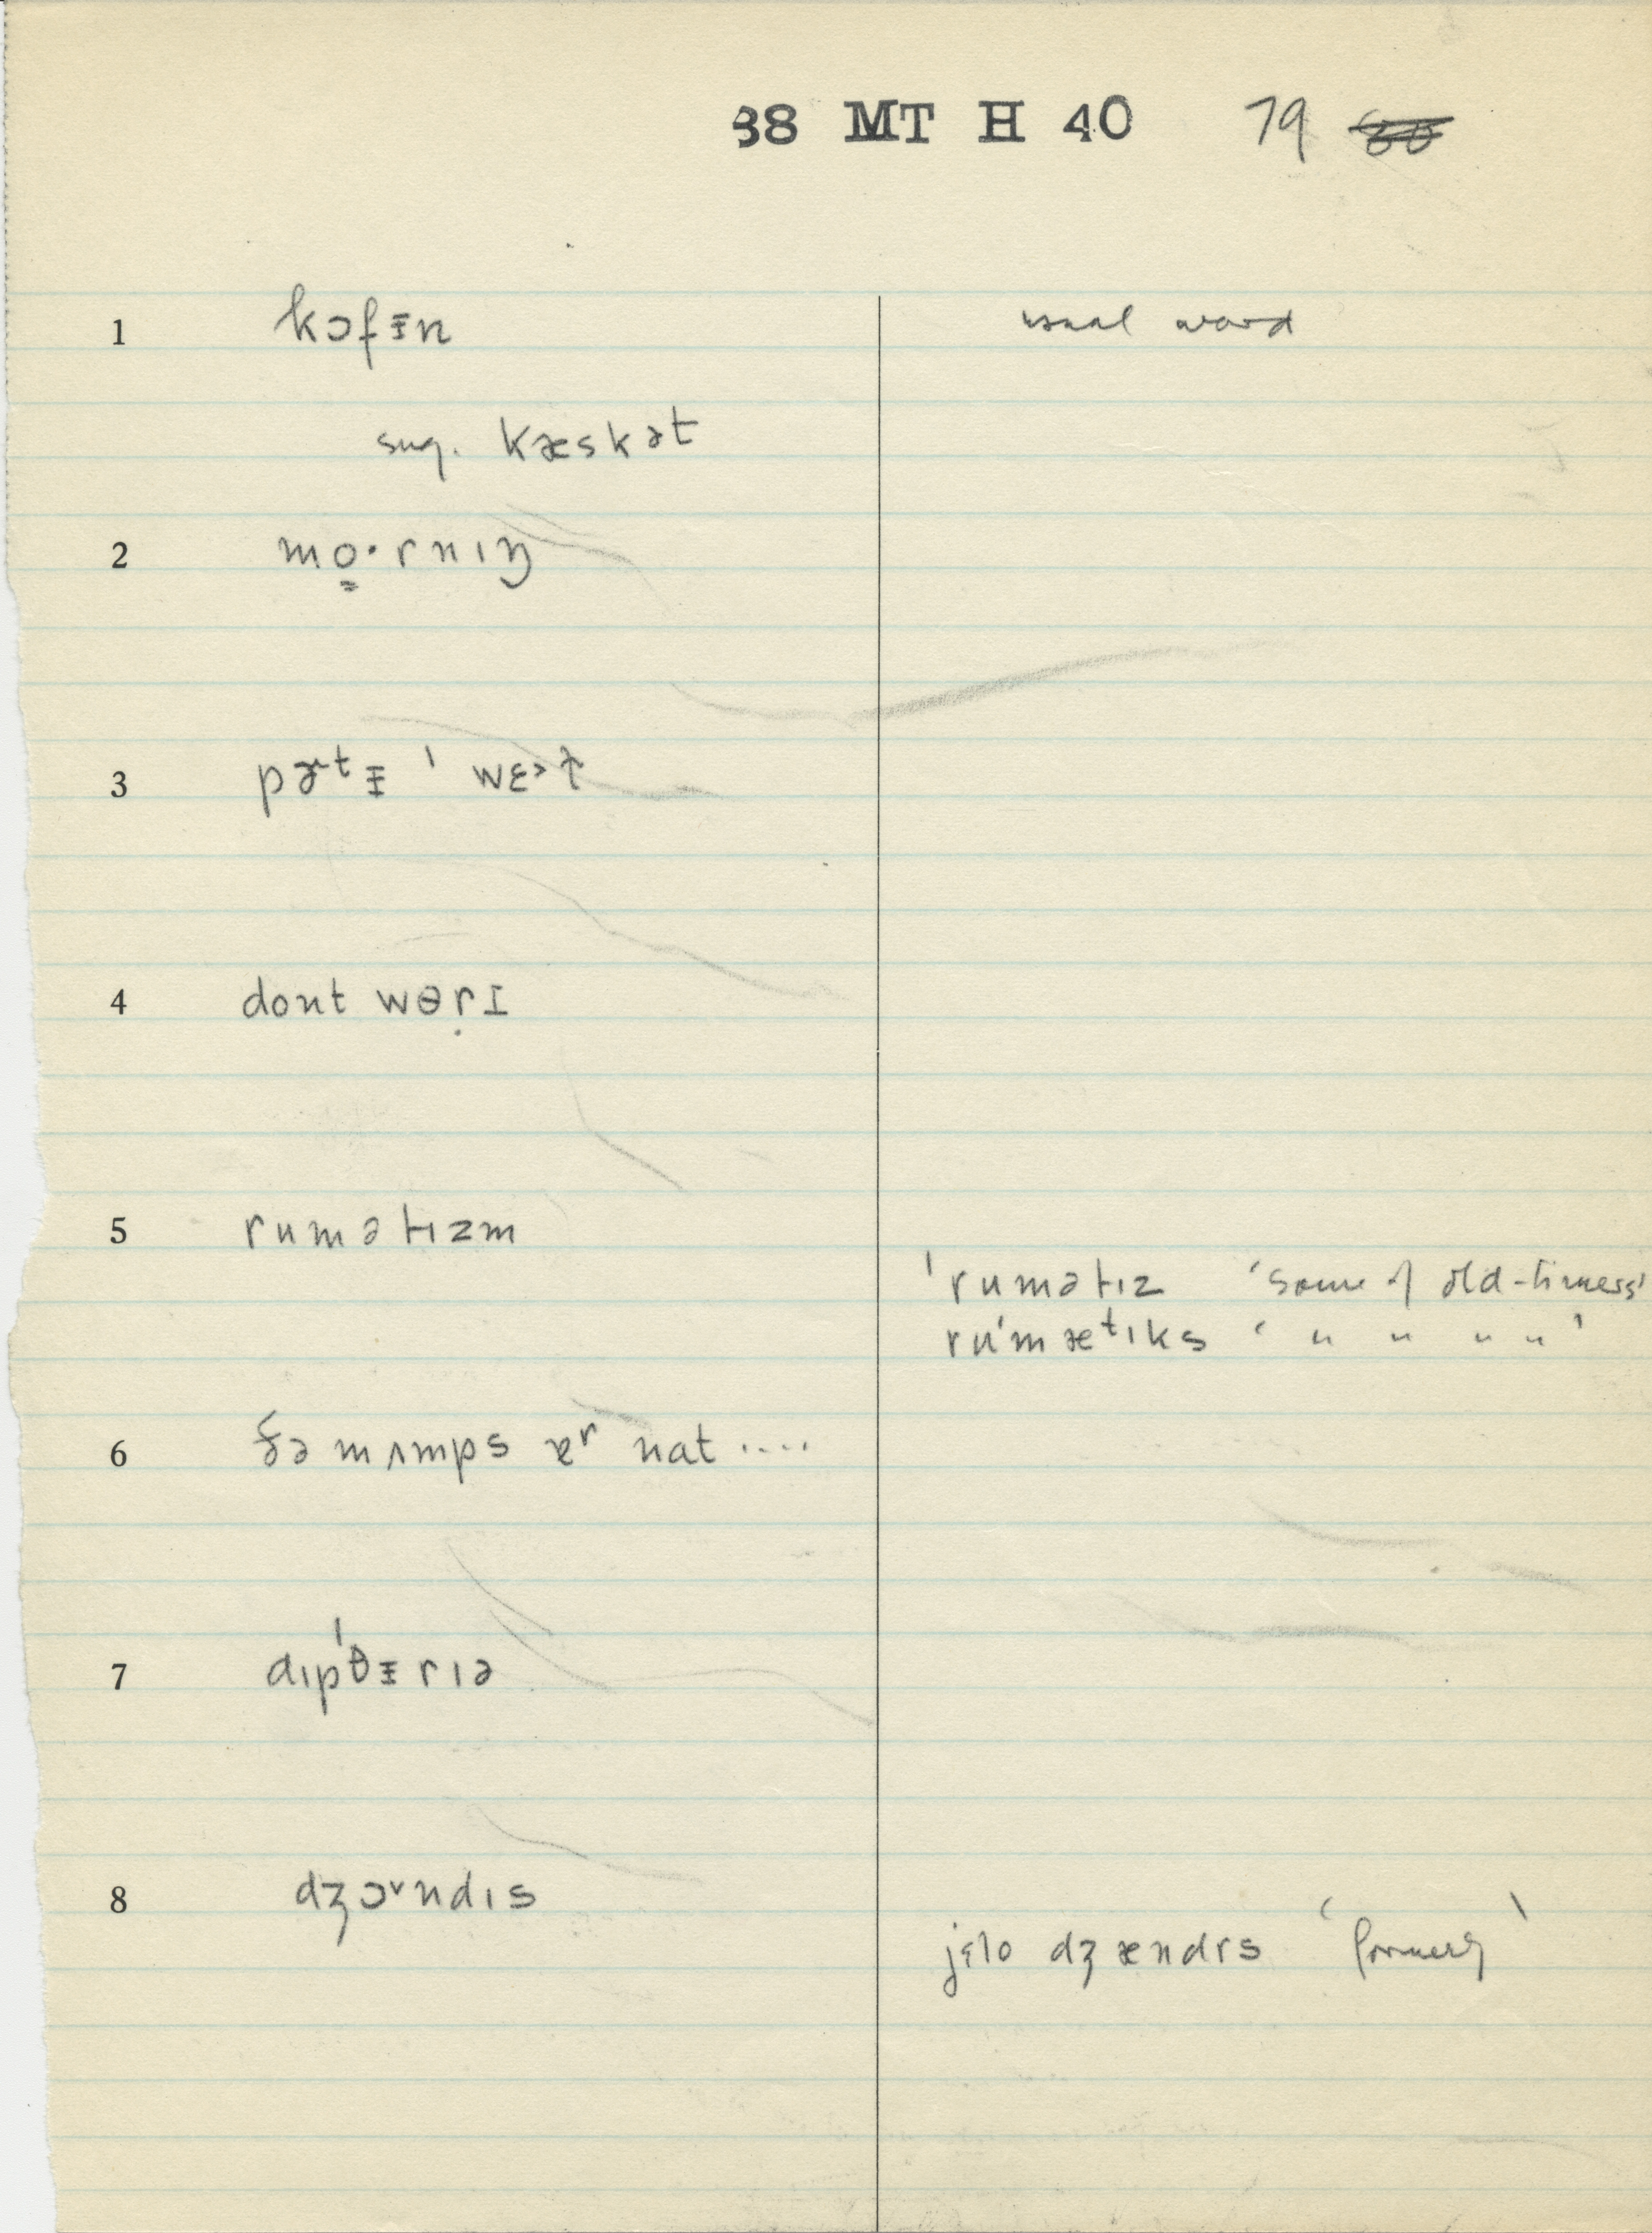 38 MT H 40 79
1 kɔfᵻn usual word
sug. kæskət
2 mo̳·rnıŋ
3 pɚtᵻ ' wɛ˃t
4 dont wɵṛɪ
5 rumətızm
'rumətız 'some of old-timers'
ru'mætıks ' " " " " '
6 ðə mʌmps ɐr nat ....
7 dıp'θᵻrıə
8 dʒɔ˅ndıs
jɛlo dʒændɪs 'formerly'